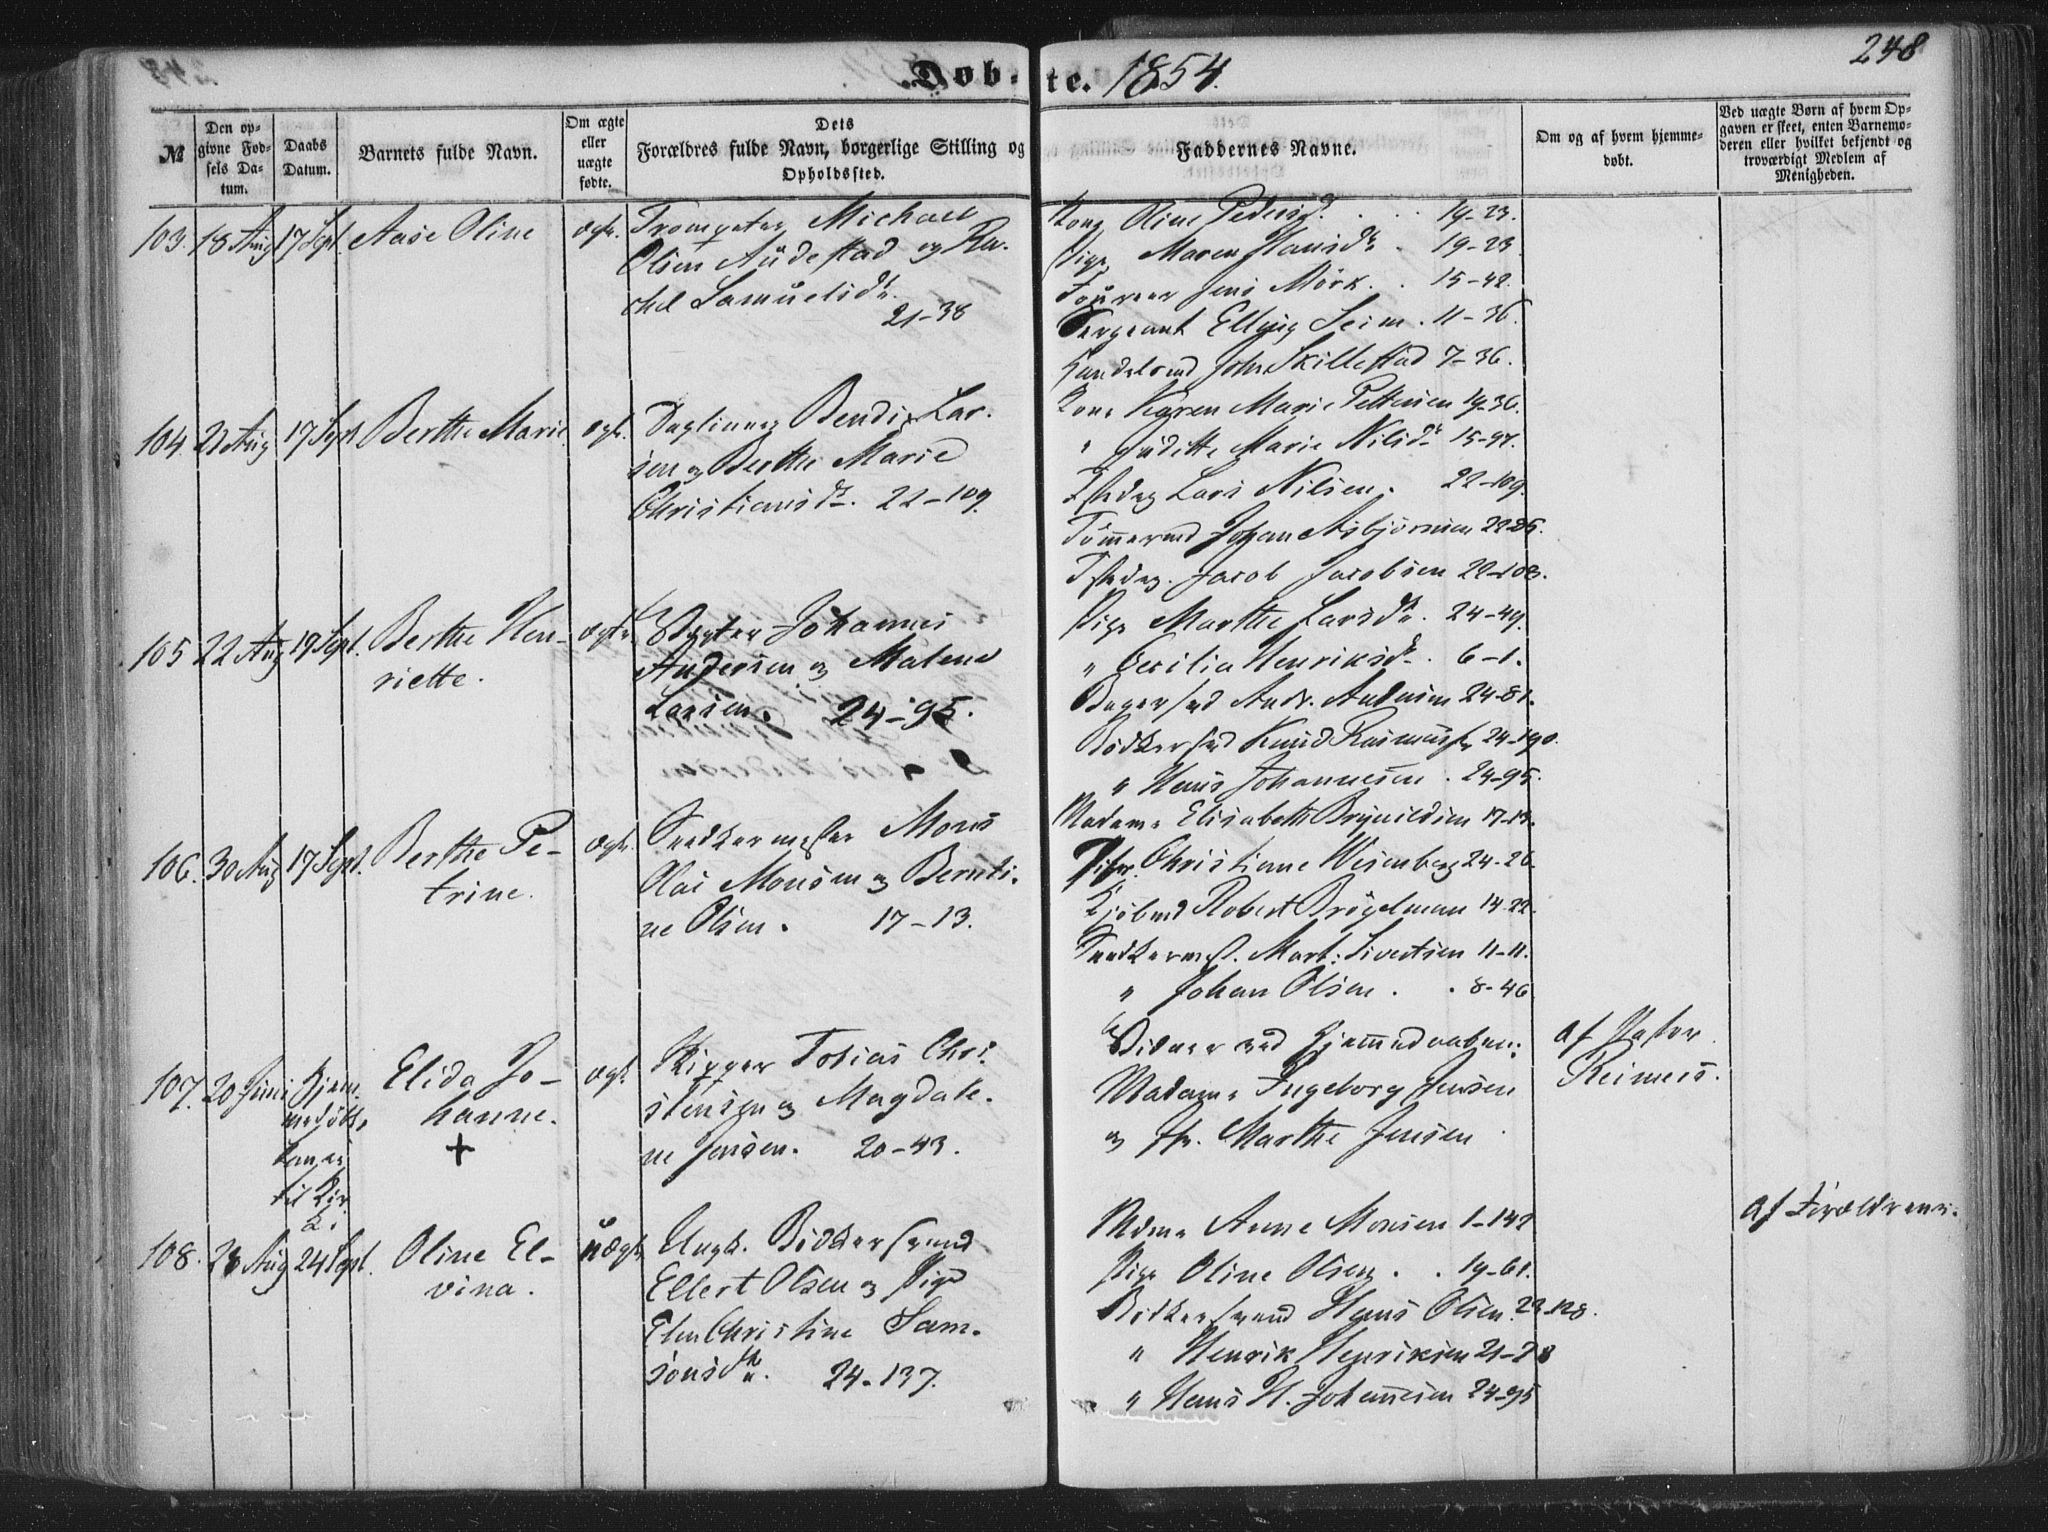 Døb-te. 1854.
248
№
Den opgivne Fødsels Datum.
Daabs Datum.
Barnets fulde Navn.
Om ægte eller uægte fødte.
Dets Forældres fulde Navn, borgerlige Stilling og Opholdssted.
Faddernes Navne.
Om og af hvem hjemmedøbt.
Ved uægte Børn af hvem Opgaven er skeet, enten Barnemoderen eller hvilket bekjendt og troværdigt Medlem af Menigheden.
103. 18 Aug 17 Sept. Aase Oline ægte.
Trompeter Michael
Olsen Audestad og Ra-
chel Samuelsdr.
21-38
Kone Oline Pedersd. 19-23.
Pige Maren Hansdr. 19-23.
Fourer Jens Mörk. 15-42.
Sergeant Elling Seim. 11-36.
Handelsmd John Skillestad 7-36.
104. 21 Aug 17 Sept Berthe Marie ægte.
Dagleier Bendix Lar-
sen og Berthe Marie
Christiansdr. 22-109.
Kone Karen Marie Pettersen 19-36.
" Judithe Marie Nilsdr 15-97.
Lars Nilsen. 22-109.
Tömmermd Johan Asbjörnsen
Jacob Jacobsen 22-103.
105 22 Aug 19 Sept. Berthe Hen-
riette. ægte.
Johannes
Andersen og Malene
Larsen. 24-95.
Pige Marthe Larsdr. 24-49.
" Cecilia Henriksdr. 6-1.
Bagersvd Andr. Andersen 24-81.
Bödkersvd Knud Rasmussen 24-190.
" Hans Johannesen. 24-95.
106. 30 Aug 17 Sept. Berthe Pe-
trine. ægte.
Snedkermester Mons
Olai Monsen og Bernti-
ne Olsen. 17-13.
Madame Elisabeth Brynildsen 17-13.
Jfr. Christiane Wesenberg 24-26
Kjöbmd Robert Brögelmann 14-22.
Snedkermst. Mart: Sivertsen 11-11.
" Johan Olsen. 8-46
107. 20 Juni Hjem-
medöbt,
kom ei
til Kir-
ke. Elida Jo-
hanne.
+
ægte.
Skipper Tobias Chri-
stensen og Magdale-
ne Jensen. 20-43.
Vidner ved Hjemmedaaben:
Madame Ingeborg Jensen
og Jfr. Marthe Jensen
af Pastor
Reimers.
108. 28 Aug 24 Sept. Oline El-
vina. uægte
Ungk. Bödkersvend
Ellert Olsen og Pige
Elen Christine Sam-
sonsdr. 24-137.
Mdme Anne Monsen 1-142
Pige Oline Olsen. 19-61.
Bödkersvend Hans Olsen. 23-128.
" Henrik Henriksen 21-28
" Hans H. Johannesen 24-95
af Forældrene.